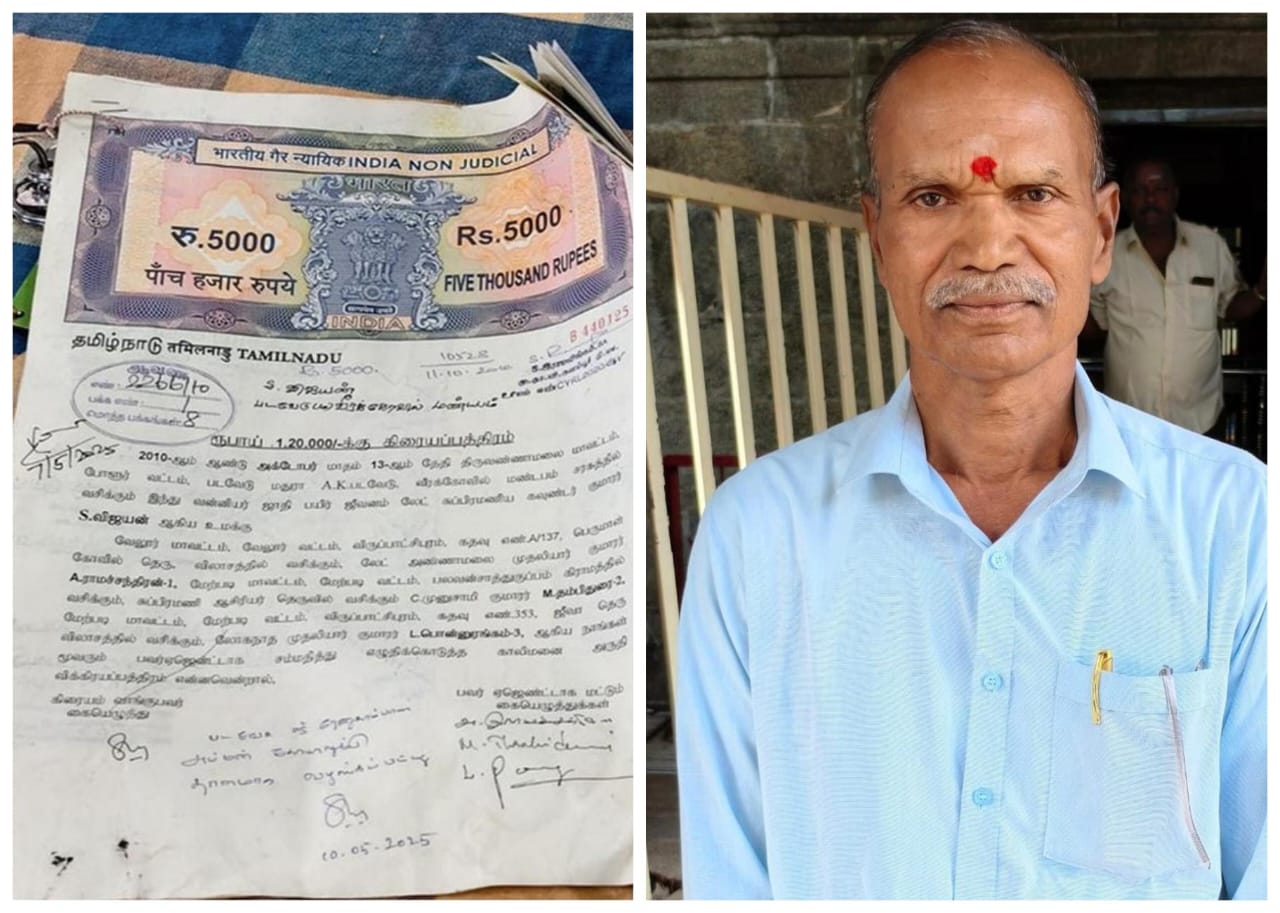 भारतीय गैर न्यायिक INDIA NON JUDICIAL
भारत
रु.5000
Rs.5000
पाँच हजार रुपये
FIVE THOUSAND RUPEES
सत्यमेव जयते
INDIA
B 440125
தமிழ்நாடு तमिलनाडु TAMILNADU
Rs. 5000.
10528
11-10-
ஆவண
எண் : 2266/10
பக்க எண் : 1
மொத்த பக்கங்கள் 8
S. விஜயன்
7/5/2025
ரூபாய் 1,20,000/-க்கு கிரையப்பத்திரம்
2010-ஆம் ஆண்டு அக்டோபர் மாதம் 13-ஆம் தேதி திருவண்ணாமலை மாவட்டம்,
போளூர் வட்டம், படவேடு மதுரா A.K.படவேடு, வீரக்கோவில் மண்டபம் சரகத்தில்
வசிக்கும் இந்து வன்னியர் ஜாதி பயிர் ஜீவனம் லேட் சுப்பிரமணிய கவுண்டர் குமாரர்
S.விஜயன் ஆகிய உமக்கு
வேலூர் மாவட்டம், வேலூர் வட்டம், விருப்பாட்சிபுரம், கதவு எண்.A/137, பெருமாள்
கோவில் தெரு, விலாசத்தில் வசிக்கும், லேட் அண்ணாமலை முதலியார் குமாரர்
A.ராமச்சந்திரன்-1, மேற்படி மாவட்டம், மேற்படி வட்டம், பலவன்சாத்துகுப்பம் கிராமத்தில்
வசிக்கும், சுப்பிரமணி ஆசிரியர் தெருவில் வசிக்கும் C.முனுசாமி குமாரர் M.தம்பிதுரை-2,
மேற்படி மாவட்டம், மேற்படி வட்டம், விருப்பாட்சிபுரம், கதவு எண்.353, ஜீவா தெரு
விலாசத்தில் வசிக்கும், லோகநாத முதலியார் குமாரர் L.பொன்னுரங்கம்-3, ஆகிய நாங்கள்
மூவரும் பவர்ஏஜெண்டாக சம்மதித்து எழுதிக்கொடுத்த காலிமனை அருதி
விக்கிரயப்பத்திரம் என்னவென்றால்,
கிரையம் வாங்குபவர்
கையெழுத்து
பவர் ஏஜெண்ட்டாக மட்டும்
கையெழுத்துக்கள்
அம்மன்
10-05-2025